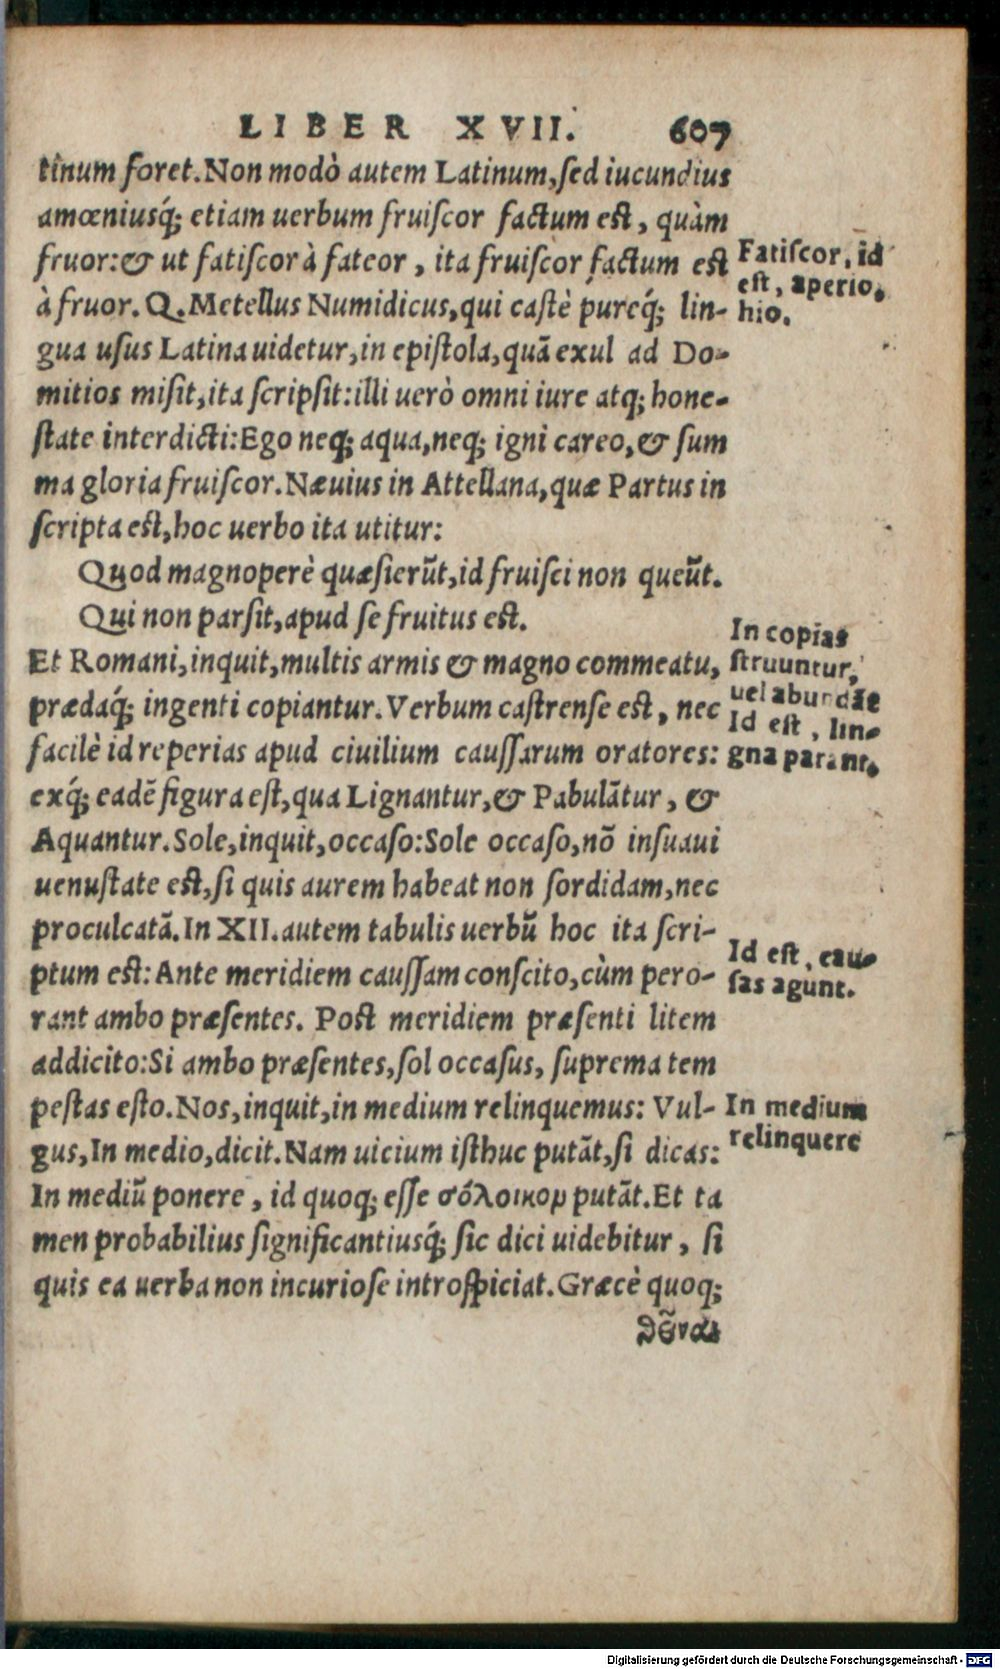 LIBER XVII. 607
tinum foret. Non modò autem Latinum, sed iucundius
amœniusq́; etiam uerbum fruiscor factum est, quàm
fruor: & ut fatiscor à fateor, ita fruiscor factum est
à fruor. Q. Metellus Numidicus, qui castè pureq́; lin-
gua usus Latina uidetur, in epistola, quã exul ad Do-
mitios misit, ita scripsit: illi uerò omni iure atq; hone-
state interdicti: Ego neq; aqua, neq; igni careo, & sum
ma gloria fruiscor. Næuius in Attellana, quæ Partus in
scripta est, hoc uerbo ita utitur:
Quod magnoperè quæsierũt, id fruisci non queũt.
Qui non parsit, apud se fruitus est.
Et Romani, inquit, multis armis & magno commeatu,
prædaq́; ingenti copiantur. Verbum castrense est, nec
facilè id reperias apud ciuilium caussarum oratores:
exq́; eadẽ figura est, qua Lignantur, & Pabulãtur, &
Aquantur. Sole, inquit, occaso: Sole occaso, nõ insuaui
uenustate est, si quis aurem habeat non sordidam, nec
proculcatã. In XII. autem tabulis uerbũ hoc ita scri-
ptum est: Ante meridiem caussam conscito, cùm pero-
rant ambo præsentes. Post meridiem præsenti litem
addicito: Si ambo præsentes, sol occasus, suprema tem
pestas esto. Nos, inquit, in medium relinquemus: Vul-
gus, In medio, dicit. Nam uicium isthuc putãt, si dicas:
In mediũ ponere, id quoq; esse σόλοικομ putãt. Et ta
men probabilius significantiusq́; sic dici uidebitur, si
quis ea uerba non incuriose introspiciat. Græcè quoq;
θεῖναι
Fatiscor, id
est, aperio,
hio.
In copias
struuntur,
uel abundãt
Id est, lin-
gna parant.
Id est, cau-
sas agunt.
In medium
relinquere
Digitalisierung gefördert durch die Deutsche Forschungsgemeinschaft - DFG